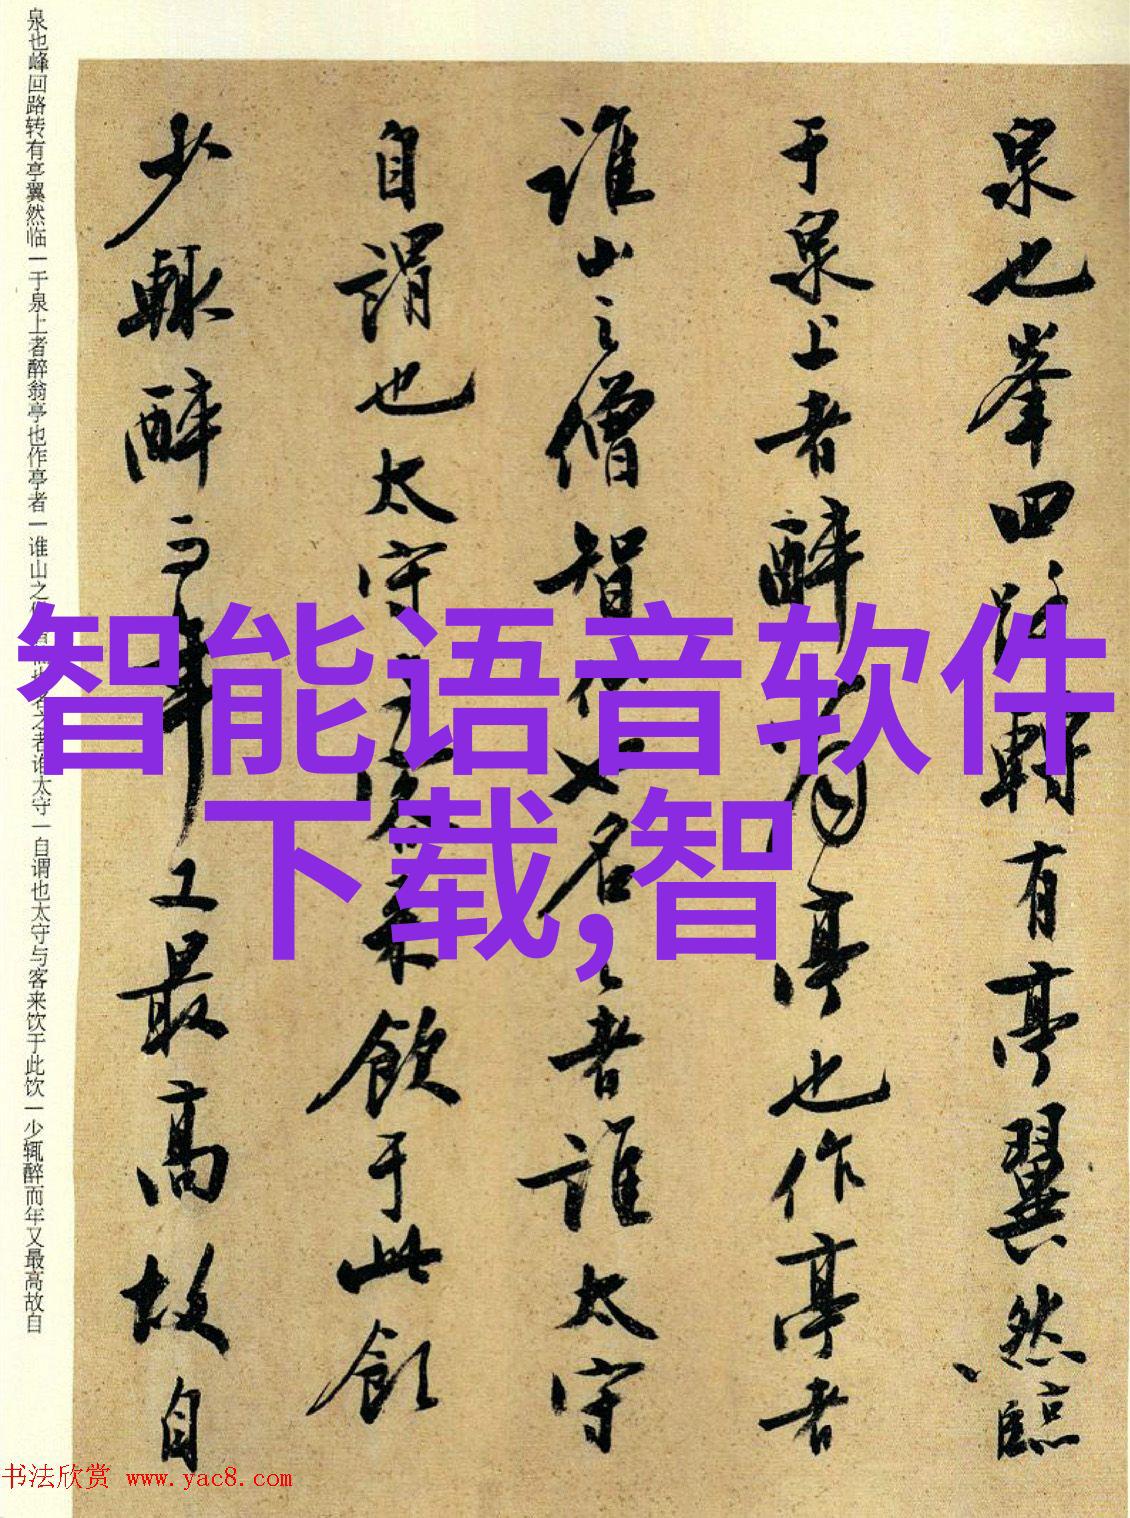 泉也峯回路轉有亭翼然臨
于泉上者醉翁亭也作亭者
誰山之僧智仙也名之者誰太守
自謂也太守与客来飲于此飲
少輒醉而年又最高故自
泉也峰回路转有亭翼然临一于泉上者醉翁亭也作亭者一谁山之名之者谁太守一自谓也太守与客来饮于此饮一少辄醉而年又最高故自
智能语音软件
下载,智
书法欣赏 www.yac8.com